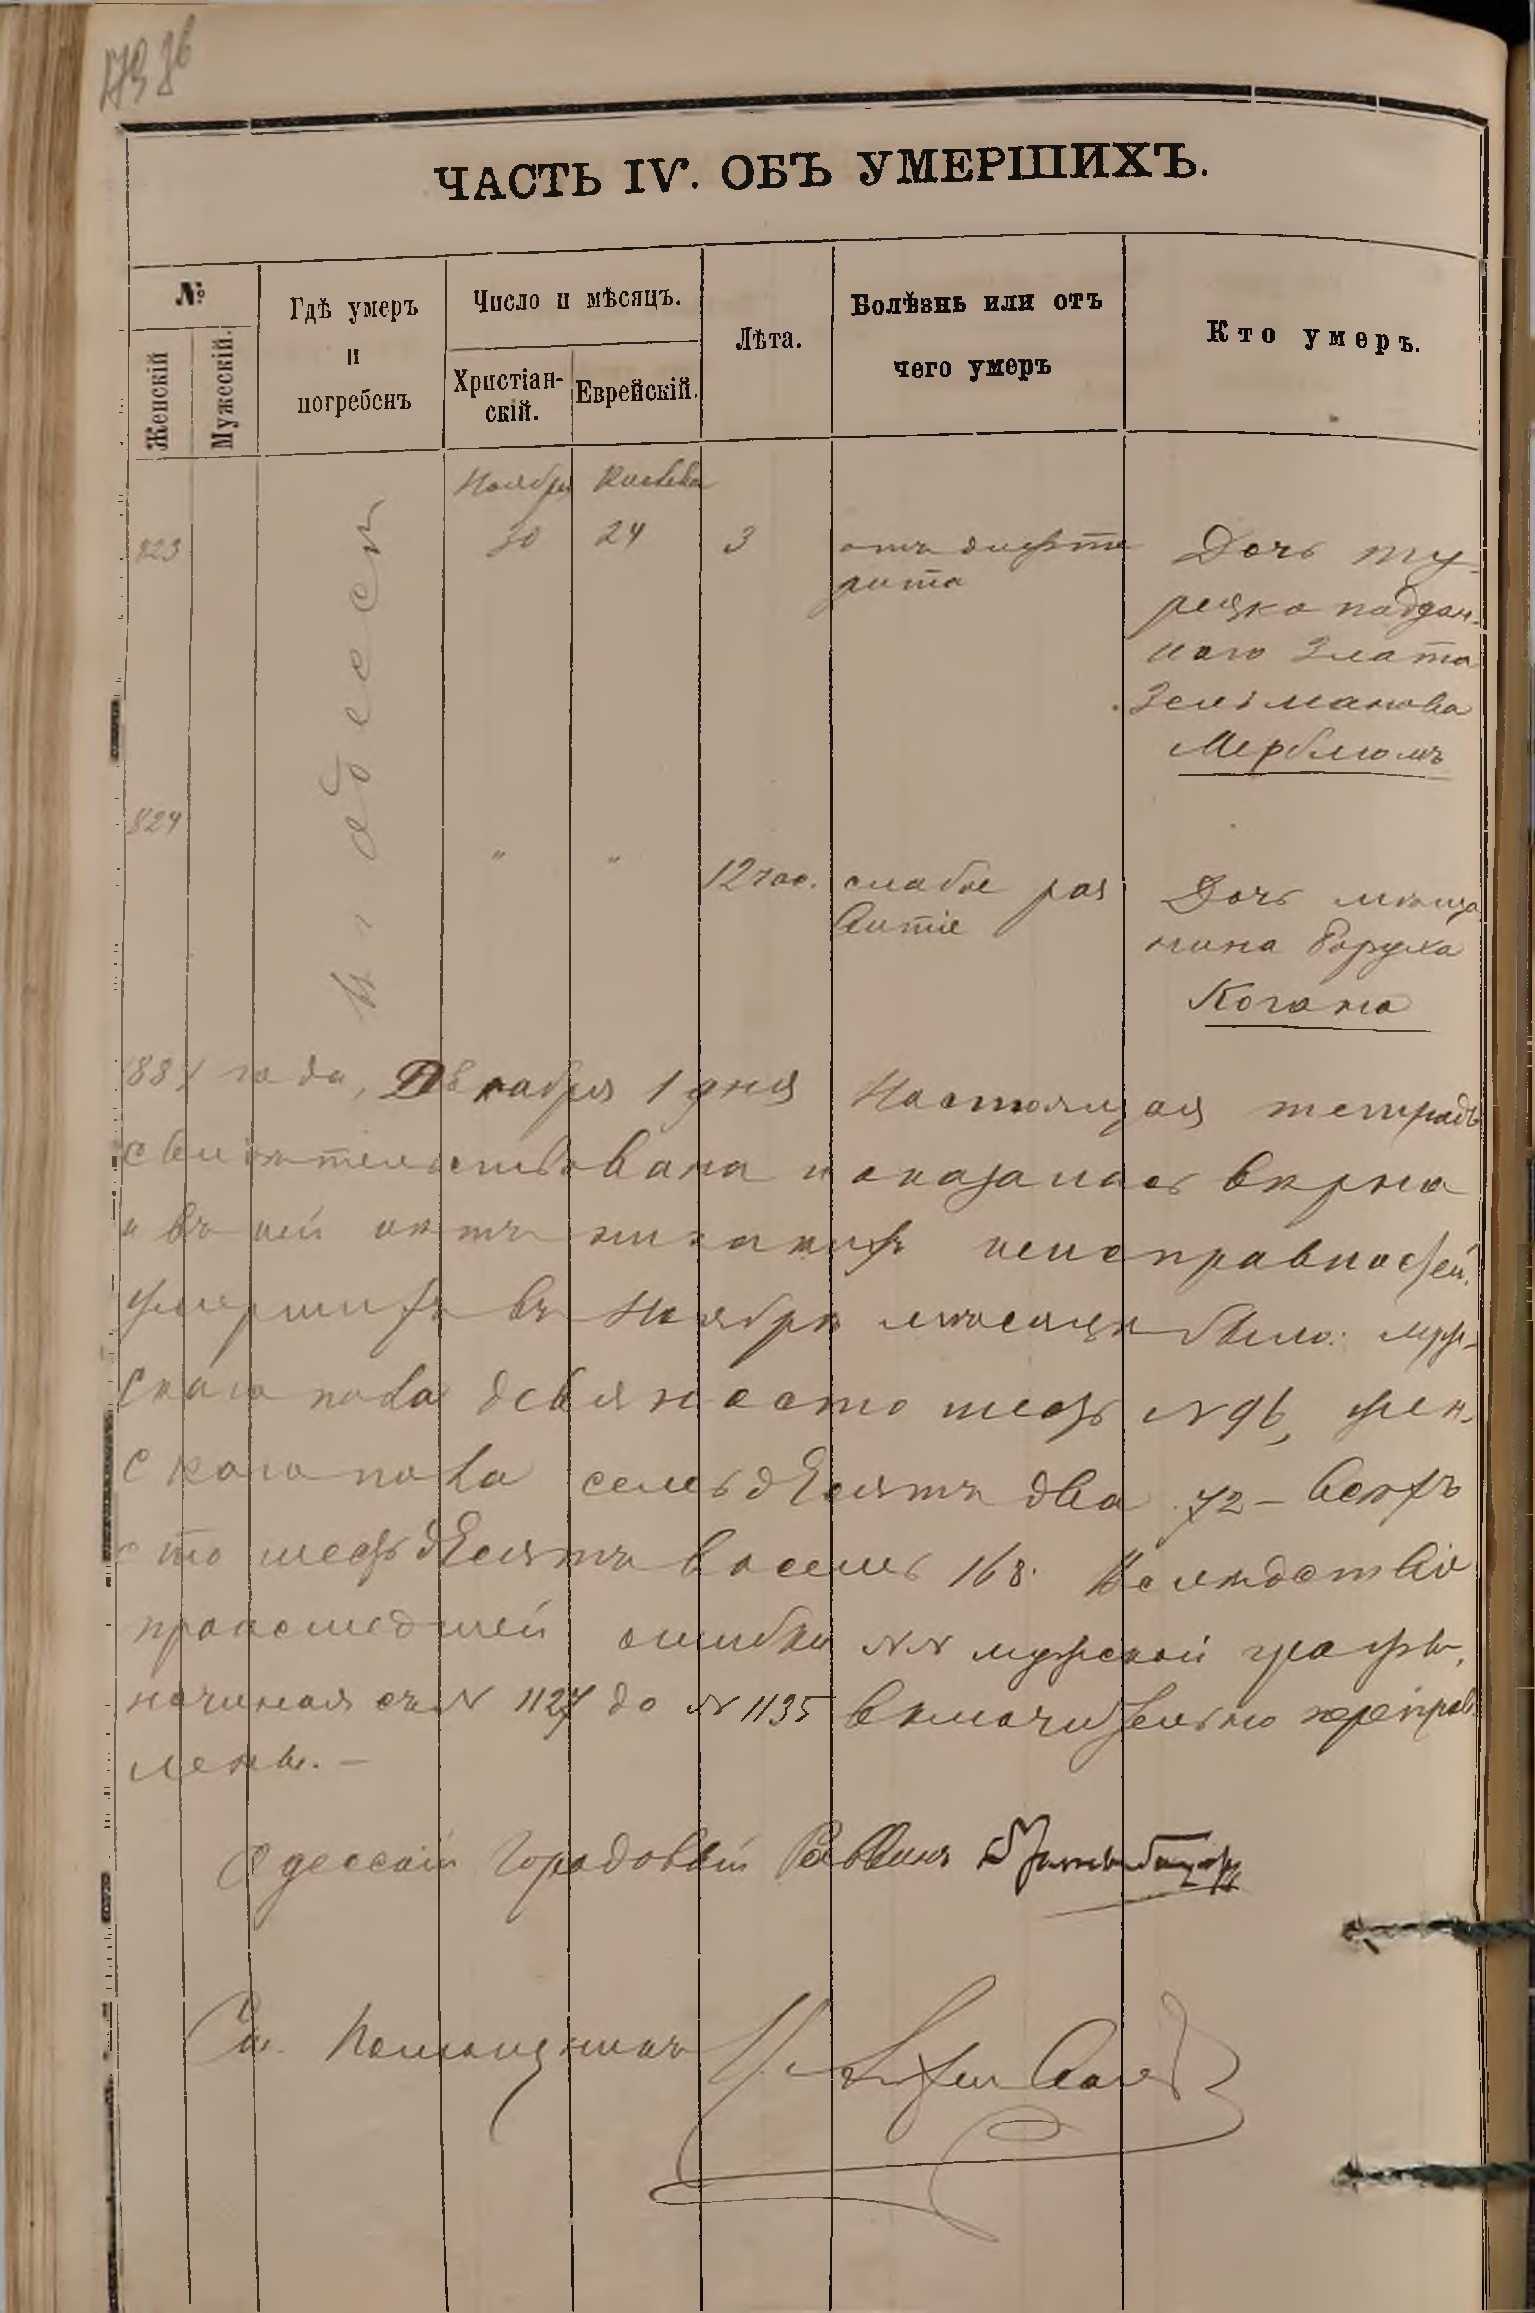 ЧАСТЬ IV. ОБЪ УМЕРШИХЪ.
№
Женскій
Мужескій.
Гдѣ умеръ
и
погребенъ
Число и мѣсяцъ.
Христіан-
скій.
Еврейскій.
Лѣта.
Болѣзнь или отъ
чего умеръ
Кто умеръ.
Въ Одессѣ
Ноября Кислева
823 30 24 3 отъ дифте
рита
Дочь ту-
рецко поддан-
наго Злата
Зельманова
Мерблюмъ
824 " " 12 час. слабое раз
витіе
Дочь мѣща
нина Боруха
Когана
1881 года, Декабря 1 дня Настоящая тетрадь
свидѣтельствована и оказалась вѣрна
и въ ней нѣтъ никакихъ неисправностей.
Умершихъ въ Ноябрѣ мѣсяцѣ было: муж-
скаго пола девяносто шесть № 96, жен-
скаго пола семьдесятъ два 72 - всѣхъ
сто шестьдесятъ восемь 168. Вслѣдствіе
происшедшей ошибки №№ мужской графы,
начиная съ № 1127 до № 1135 включительно переправ
лены. —
Одесскій Городовой Раввинъ
Св. Помощникъ